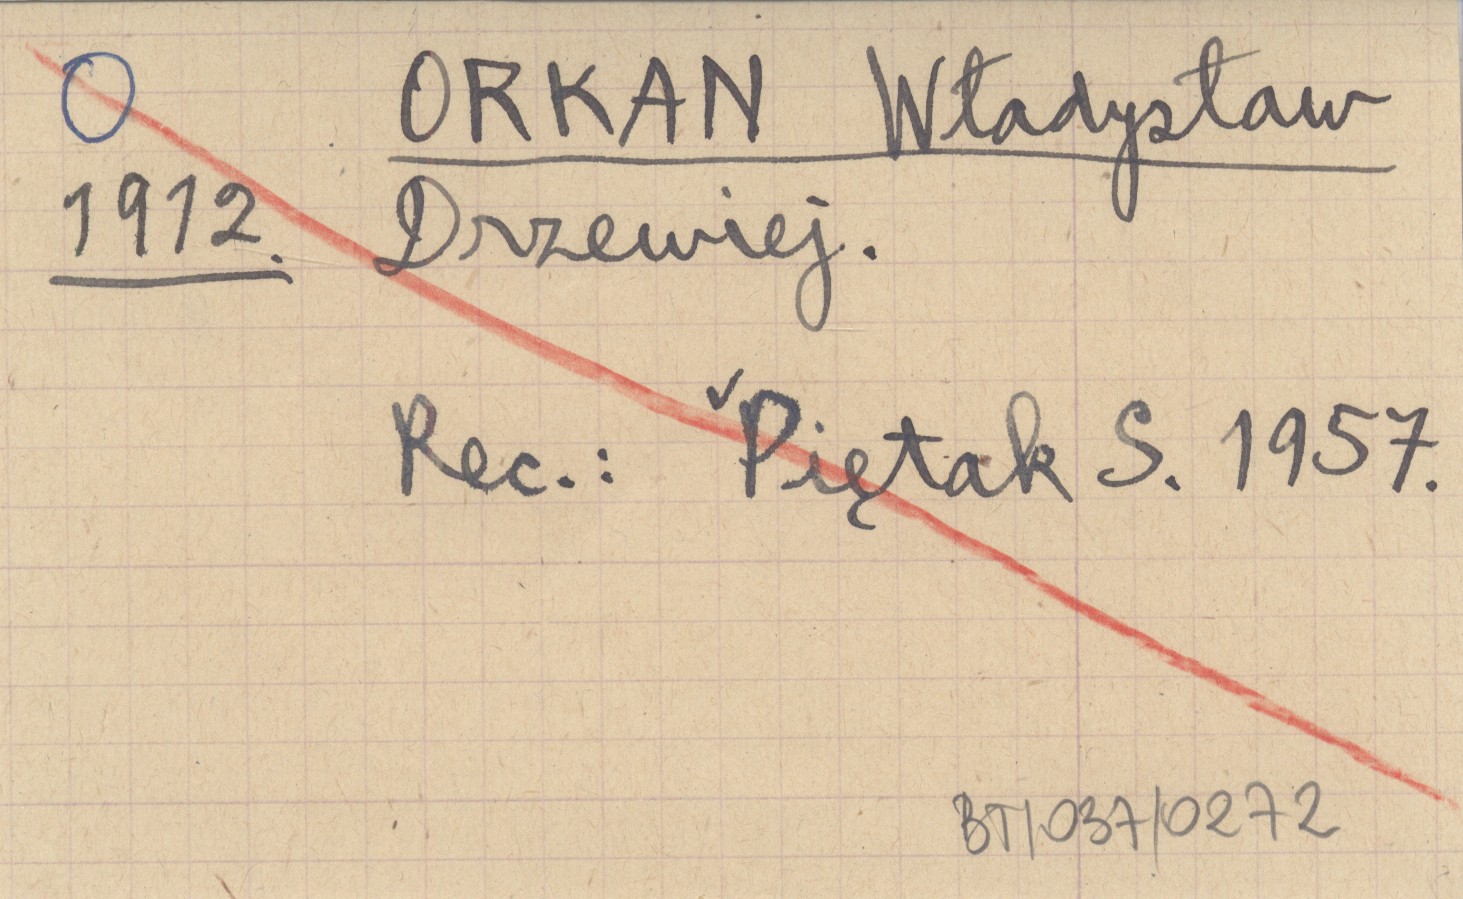 O ORKAN Władysław
1912. Drzewiej.
Rec.: ✓Piętak S. 1957.
BT/037/0272